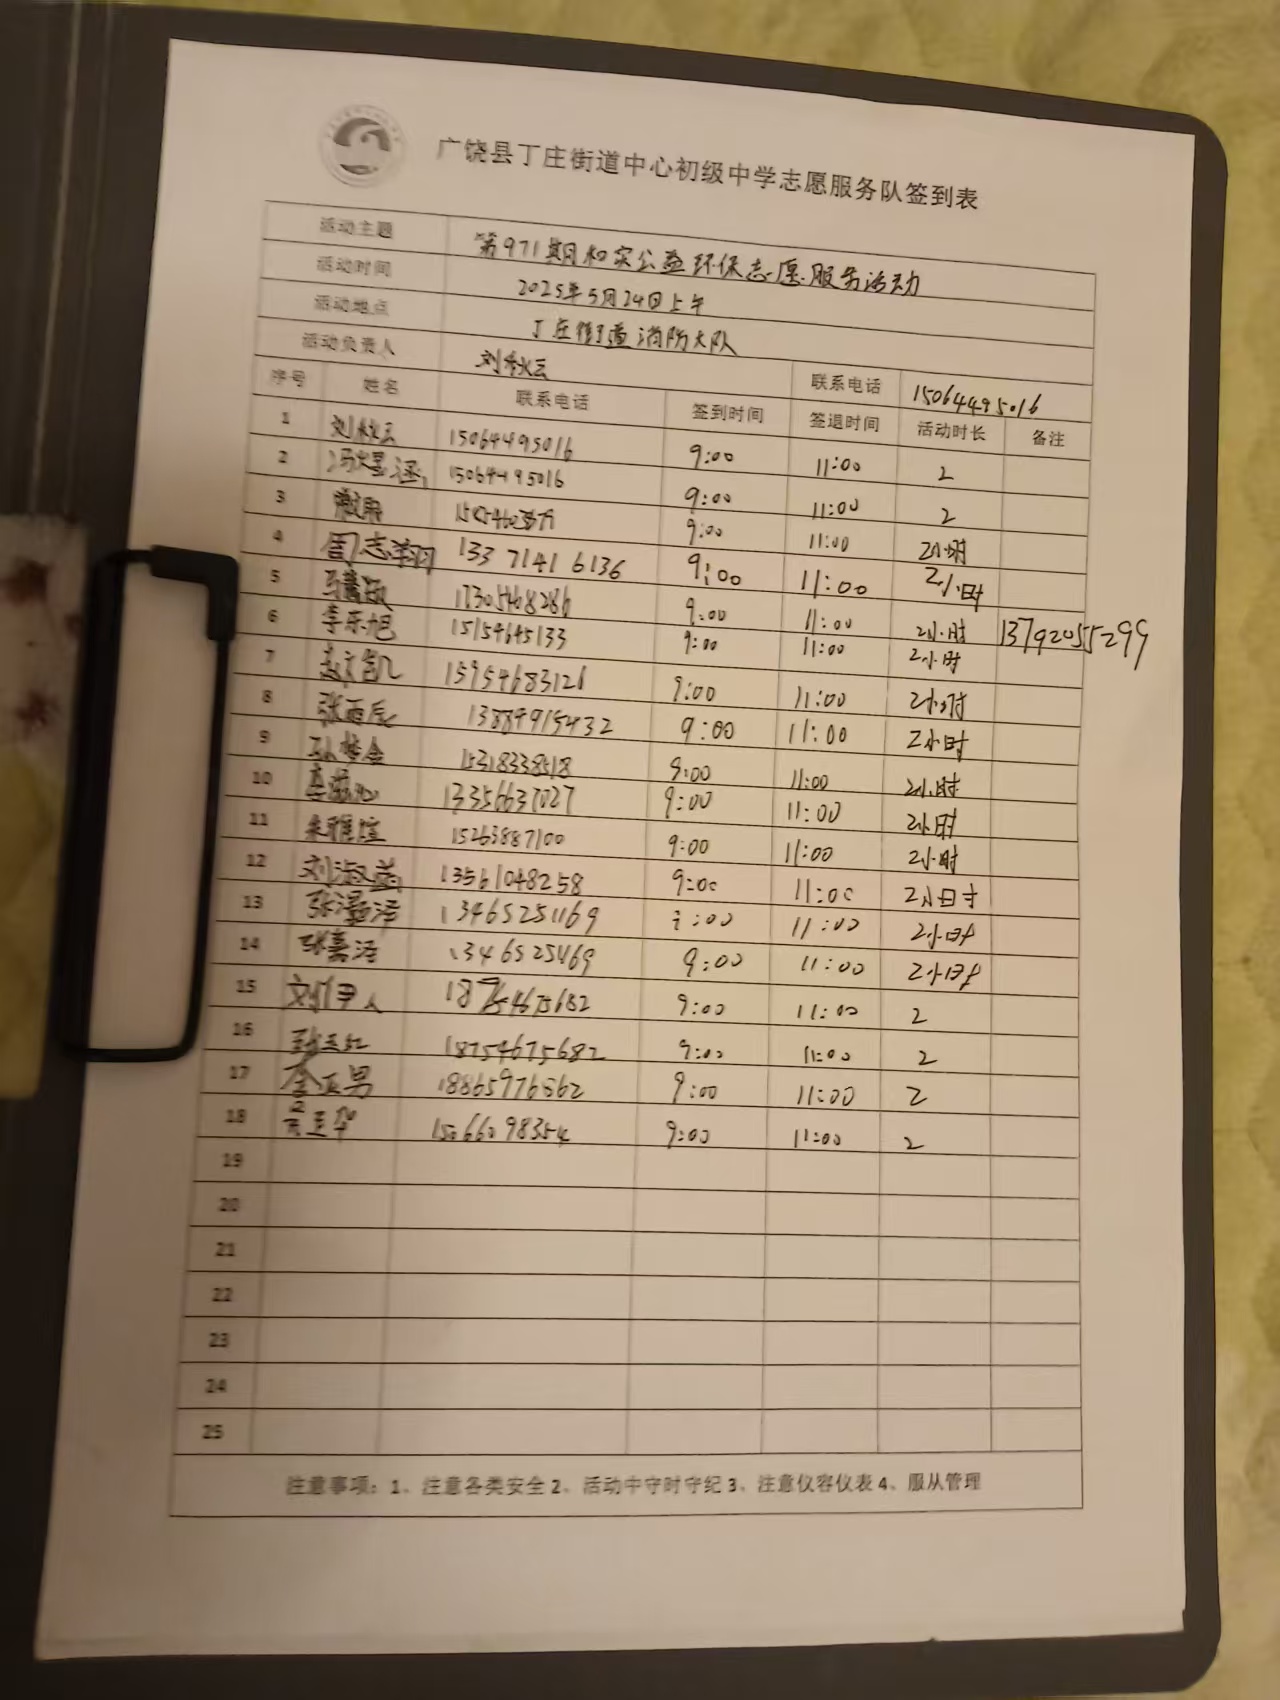 广饶县丁庄街道中心初级中学志愿服务队签到表
活动主题 第971期和实公益环保志愿服务活动
活动时间 2025年5月24日上午
活动地点 丁庄街道消防大队
活动负责人 刘秋云 联系电话 15064495016
序号 姓名 联系电话 签到时间 签退时间 活动时长 备注
1 刘秋云 15064495016 9:00 11:00 2
2 冯煜涵 15064495016 9:00 11:00 2
3 9:00 11:00 2小时
4 周志翔 13371416136 9:00 11:00 2小时
5 17305468286 9:00 11:00 2小时 13792055299
6 李乐旭 15154645133 9:00 11:00 2小时
7 孟文凯 15954683126 9:00 11:00 2小时
8 张雨辰 13889915432 9:00 11:00 2小时
9 15318338518 9:00 11:00 2小时
10 13356637027 9:00 11:00 2小时
11 朱雅萱 15263887100 9:00 11:00 2小时
12 刘淑益 13561048258 9:00 11:00 2小时
13 13465251169 :00 11:00 2小时
14 张嘉泽 9:00 11:00 2小时
15 9:00 11:00 2
16 18754675682 9:00 11:00 2
17 9:00 11:00 2
18 15066098354 9:00 11:00 2
19
20
21
22
23
24
25
注意事项：1、注意各类安全 2、活动中守时守纪 3、注意仪容仪表 4、服从管理